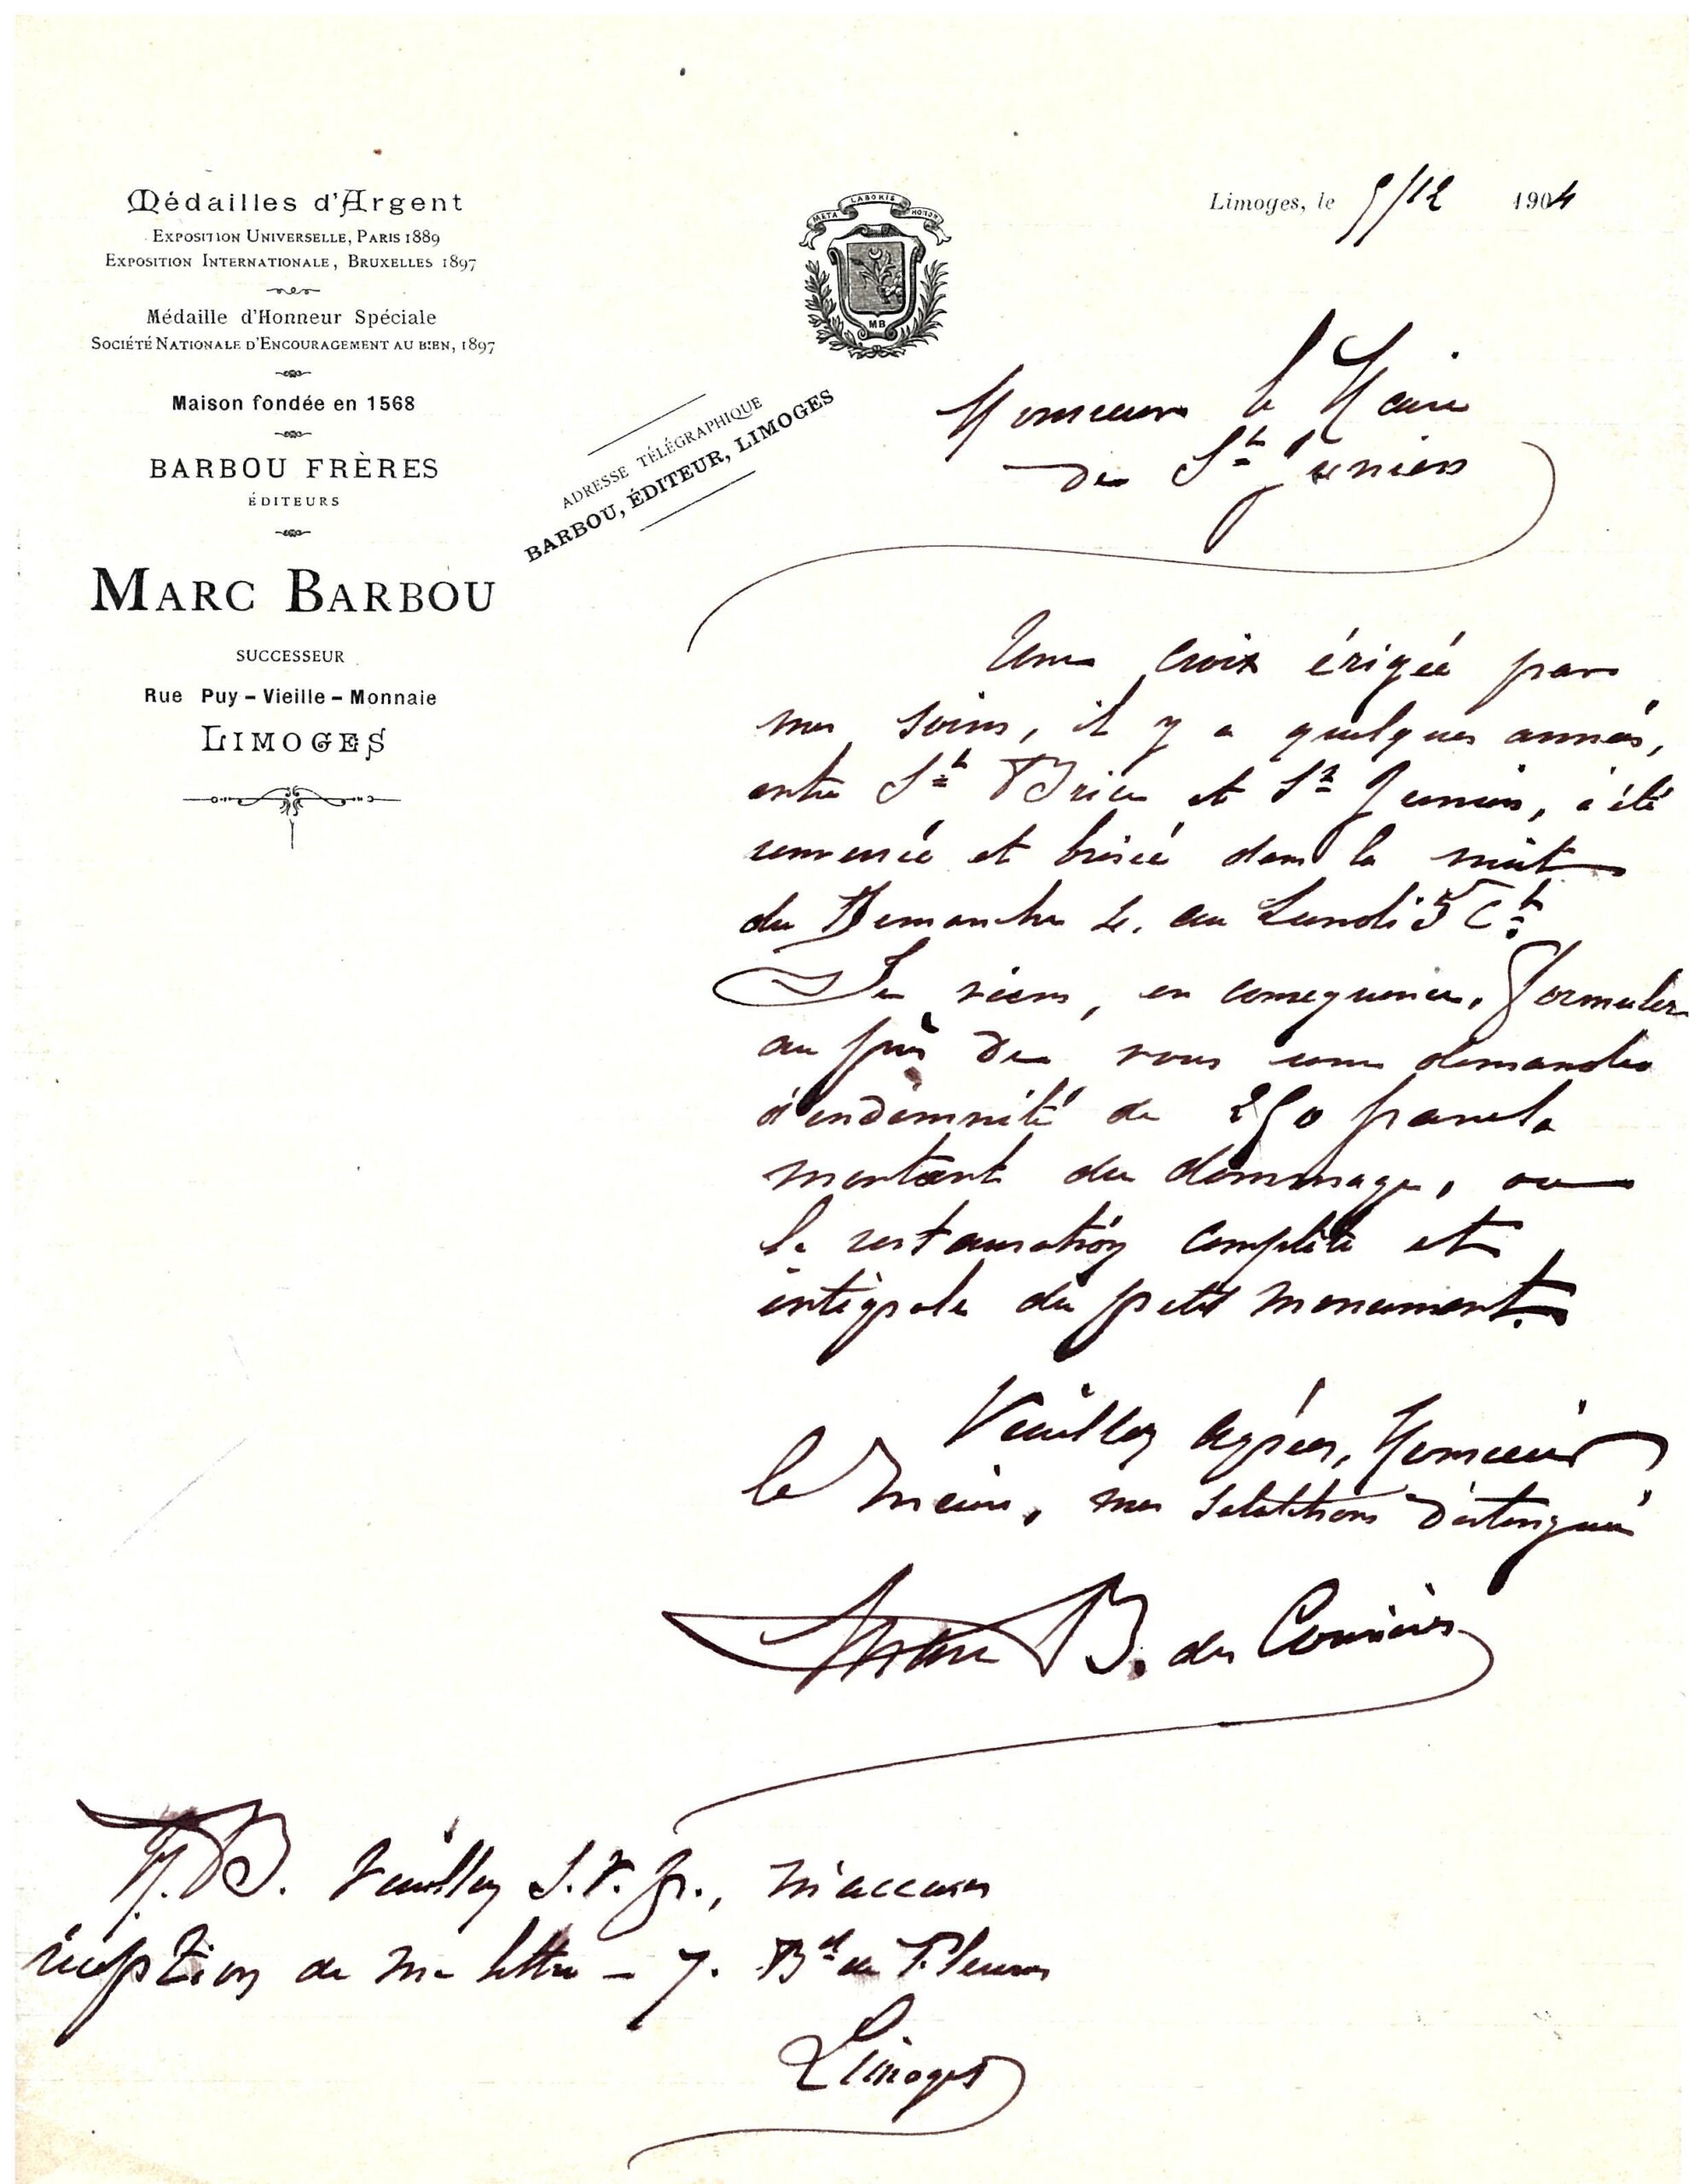 Médailles d'Argent
EXPOSITION UNIVERSELLE, PARIS 1889
EXPOSITION INTERNATIONALE, BRUXELLES 1897
Médaille d'Honneur Spéciale
SOCIÉTÉ NATIONALE D'ENCOURAGEMENT AU BIEN, 1897
Maison fondée en 1568
BARBOU FRÈRES
ÉDITEURS
MARC BARBOU
SUCCESSEUR
Rue Puy-Vieille-Monnaie
LIMOGES
ADRESSE TÉLÉGRAPHIQUE
BARBOU, ÉDITEUR, LIMOGES
META LABORIS HONOR
MB
Limoges, le 9/12 1904
Monsieur le Maire
de St Junien
Une croix érigée par
mes soins, il y a quelques années,
entre St Brice et St Junien, a été
renversée et brisée dans la nuit
du Dimanche 4, au Lundi 5 Ct
Je viens, en conséquence, formuler
au près de vous une demande
d'indemnité de 250 francs
montant du dommage, ou
la restauration complète et
intégrale du petit monument.
Veuillez agréer, Monsieur
le Maire, mes salutations distinguées
Marc B. des Courières
N.B. Veuillez S.V.p., m'accuser
réception de ma lettre - 7. Bd de Fleurus
Limoges